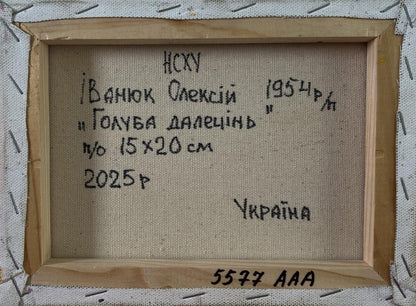 НСХУ
Іванюк Олексій 1954р/н
„Голуба далецінь"
п/о 15х20см
2025р
Україна
5577 ААА